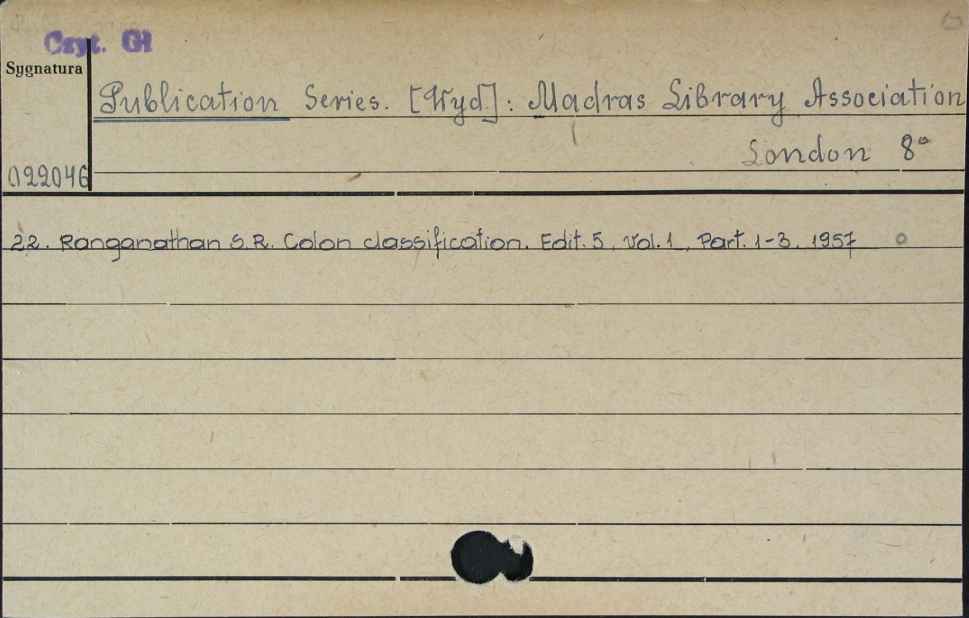 Czyt. Gł
Sygnatura
Publication Series. [Wyd]: Madras Library Association
London 8°
022046
22. Ranganathan S.R. Colon classification. Edit. 5, Vol. 1, Part. 1-3, 1957